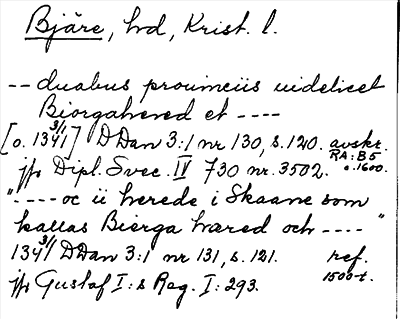 Bjäre, hd, Krist. l.
-- duabus prouinciis uidelicet
Biorgahered et ----
[o. 1341 3/1] DDan 3:1 nr 130, s. 120. avskr.
RA: B5
jfr Dipl. Svec. IV 730 nr. 3502. o. 1600.
"---- oc ii herede i Skaane som
kallas Bierga hæred och ----"
134 3/1 DDan 3:1 nr 131, s. 121. ref.
1500-t.
jfr Gustaf I:s Reg. I: 293.